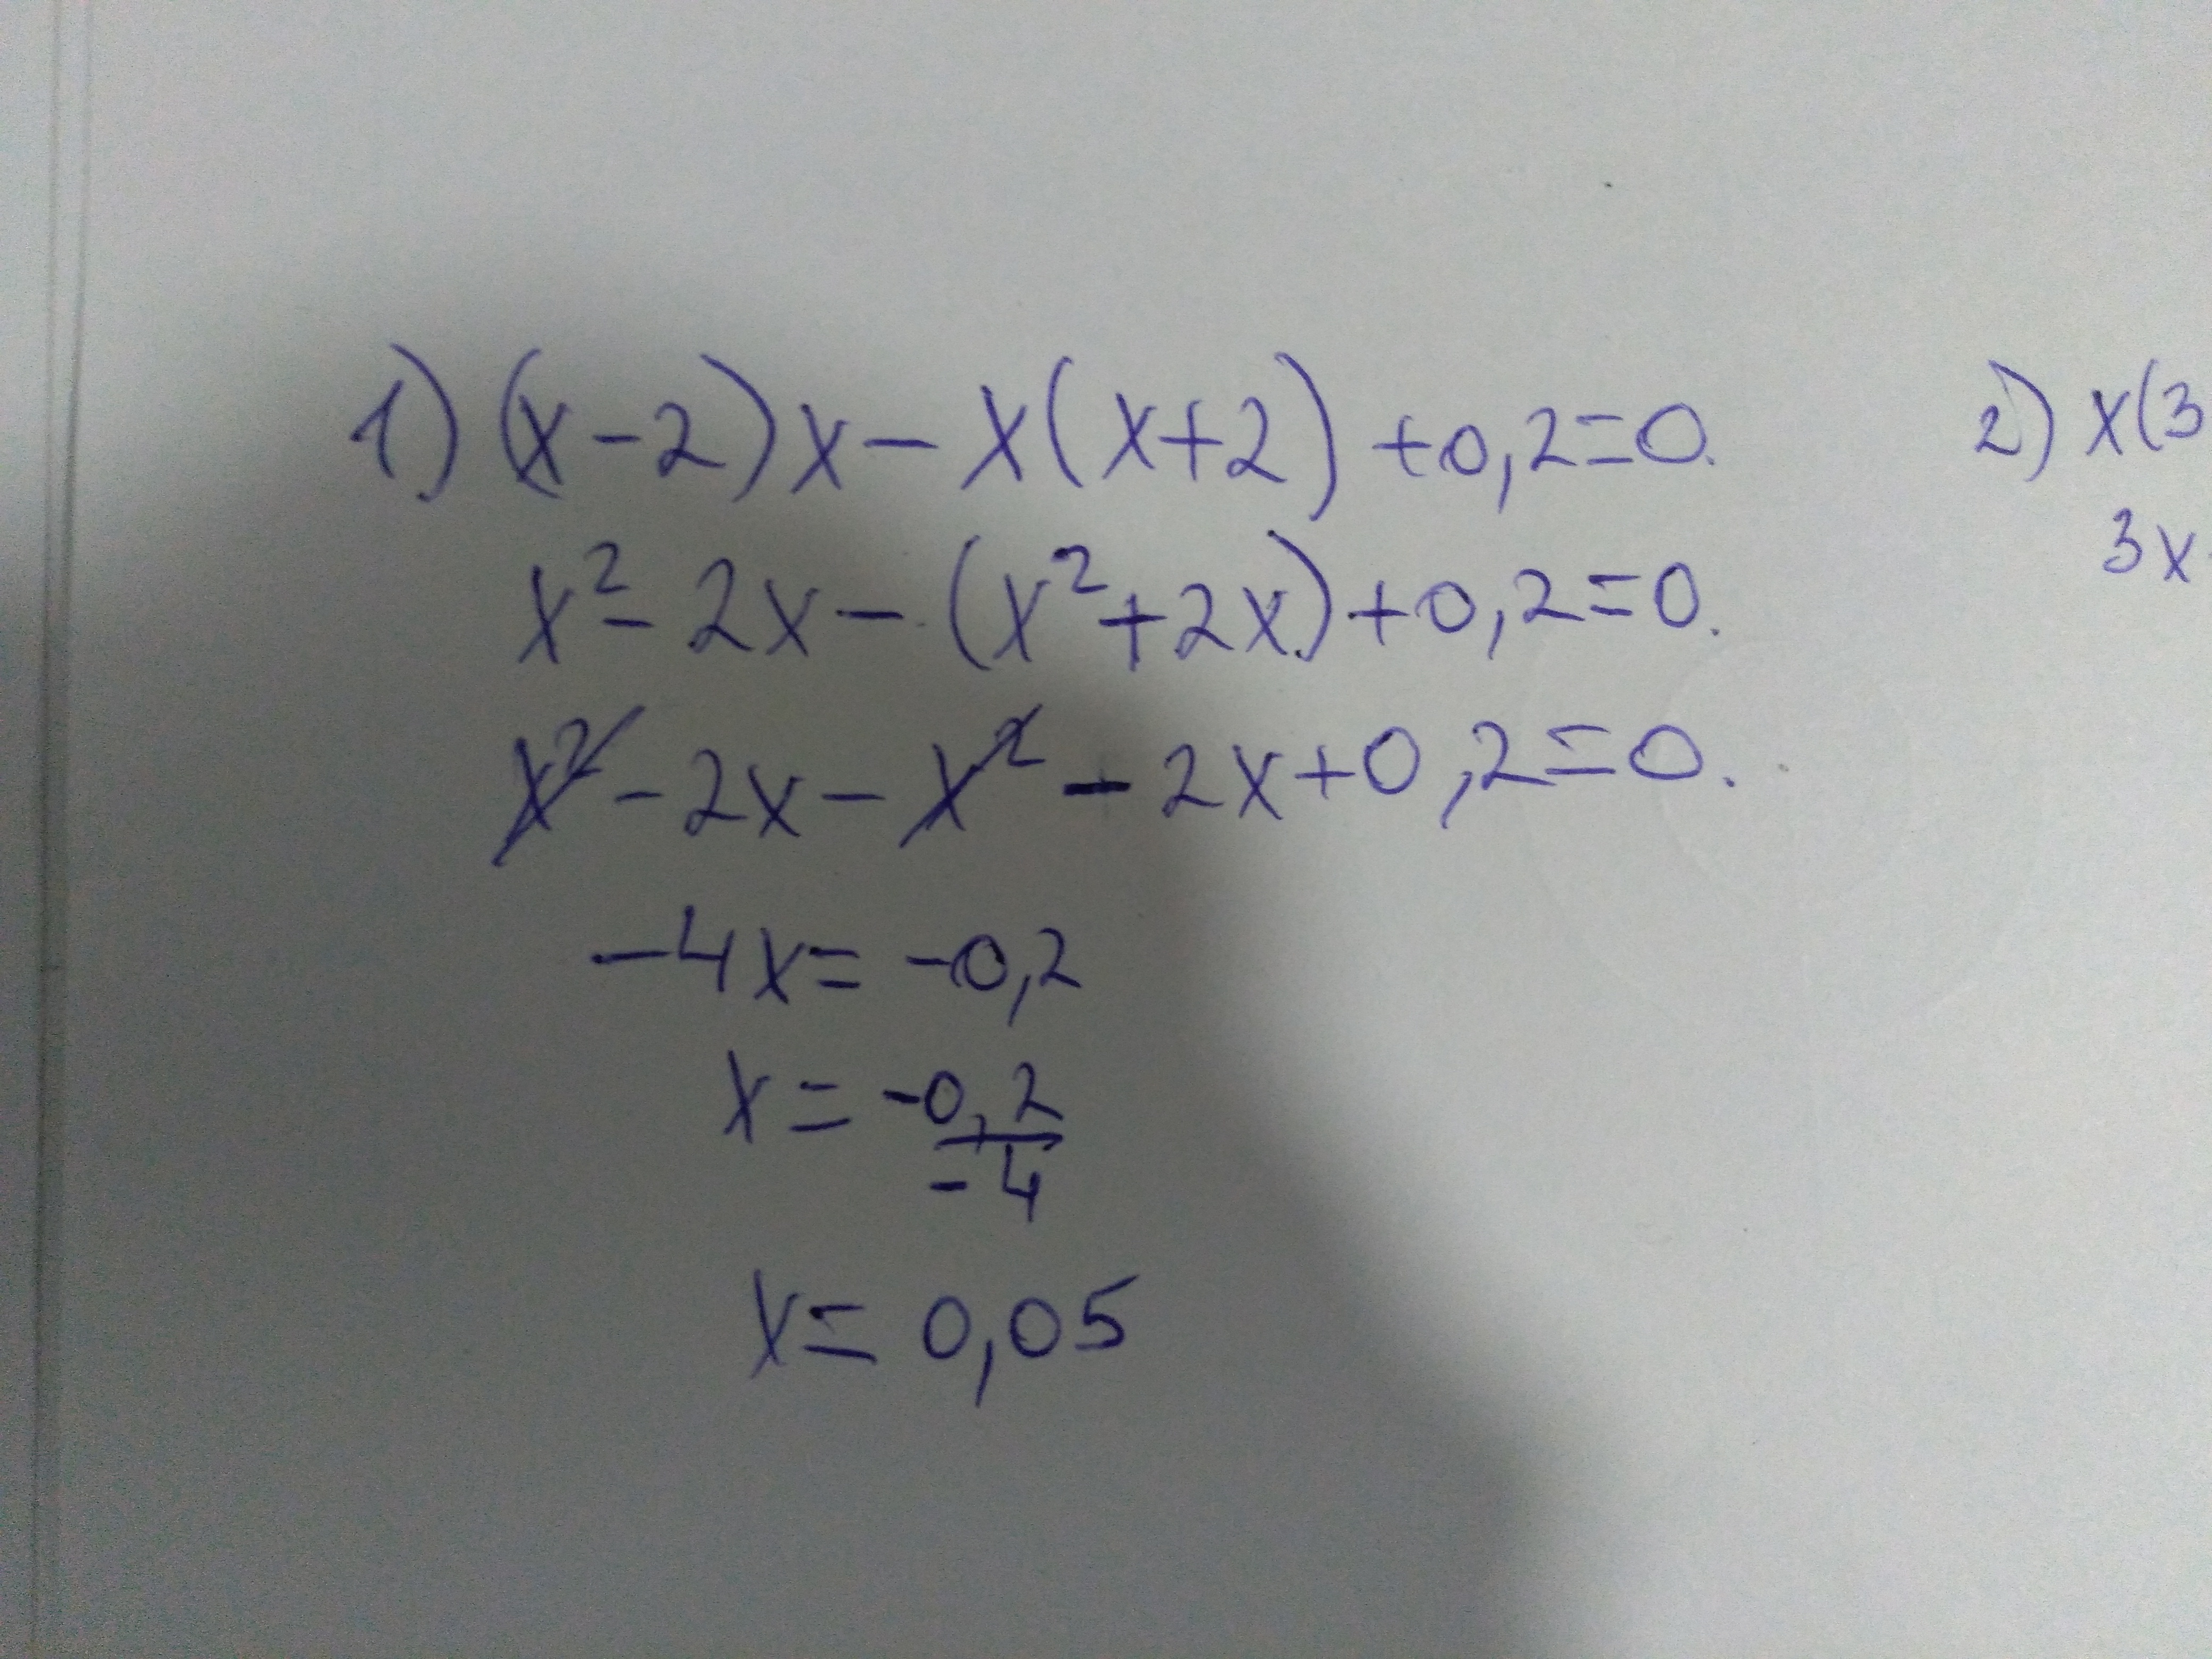 1) (x-2)x - x(x+2) +0,2=0.
x²- 2x - (x²+2x)+0,2=0.
x² - 2x - x² - 2x+0,2=0.
-4x= -0,2
x= -0,2/-4
x= 0,05
2) x(3
3x